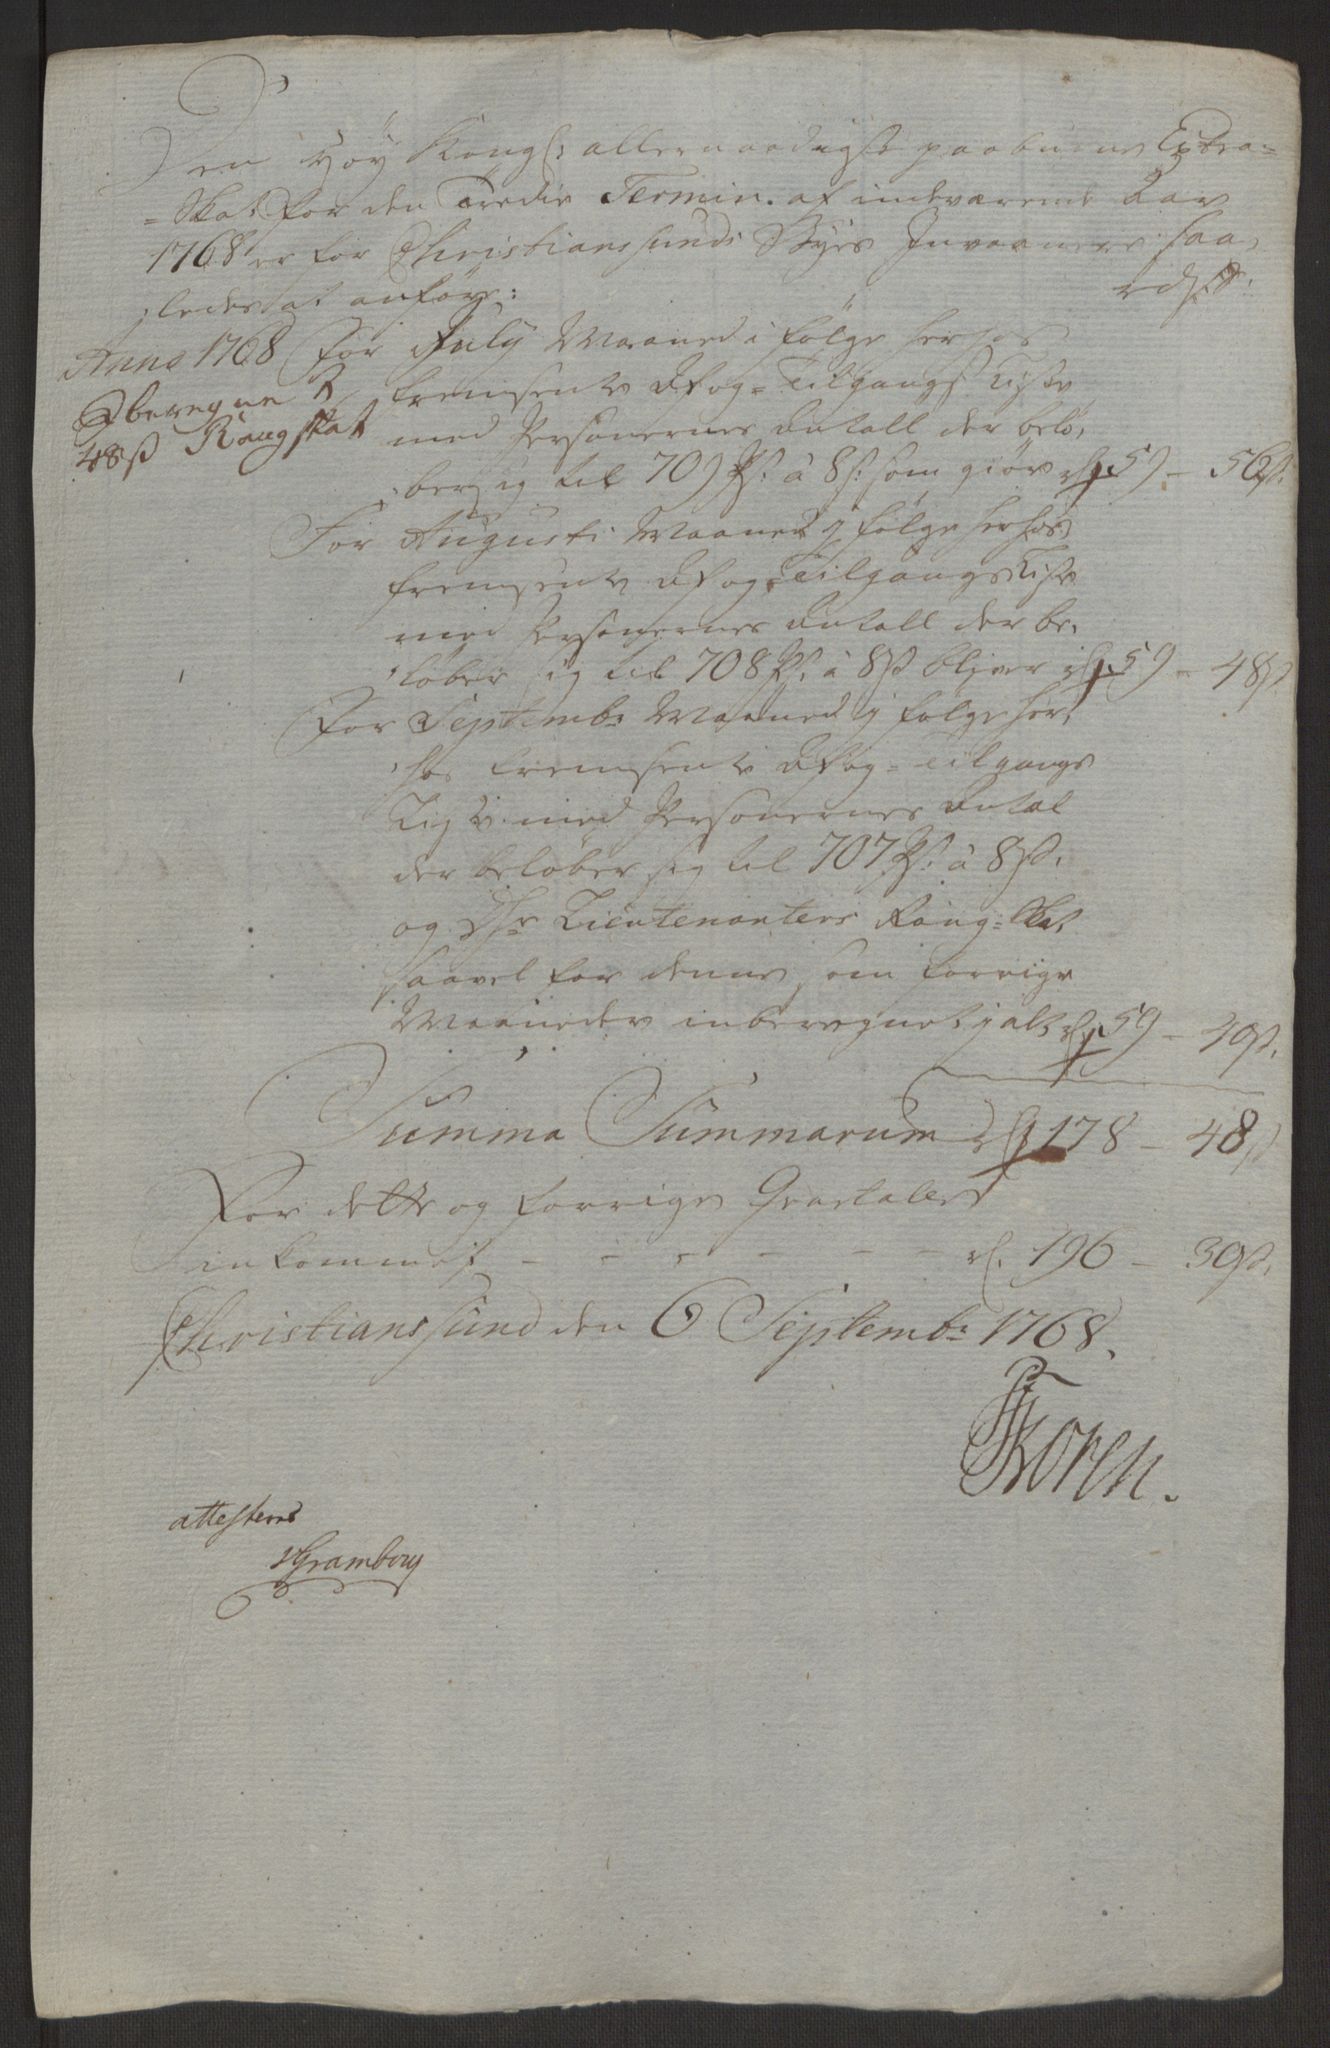 Den Høy Kongl: allernaadigste paabudne Extra=
=Skat for den Tredie Termin. af indeværende Aar
1768 er for Christianssunds Byes Indvaanere saa,
,ledes at anføre:
rd ß:
Anno 1768
Iberegne
48ß Rangskat
For July Maaned i følge herhos
fremsente Af og = Tilgangs Liste
med Personernes Antall der belø,
,ber sig til 709 Ps: à 8ß: som giør rd 59 - 56ß:
For Augusti Maaned i følge herhos
fremsente Af og Tilgangs Liste
med Personernes Antall der be,
,løber sig til 708 Ps. à 8ß bliver rd 59 - 48ß
For Septembr: Maaned i følge her,
,hos fremsente Af og = Tilgangs
Liste med Personernes Antal
der beløber sig til 707 Ps: à 8ß.
og Lieutenanters Rang=Skat
saavel for denne som forrige
Maaneder inberegnet i alt rd 59 - 40ß.
Summa Summarum rd 178 - 48ß
For dette og forrige Qvartaler
inkommet - - - - - - rd. 196 - 30ß.
Christianssund den 6 Septembr: 1768.
Koren.
attesterer
Gramborg